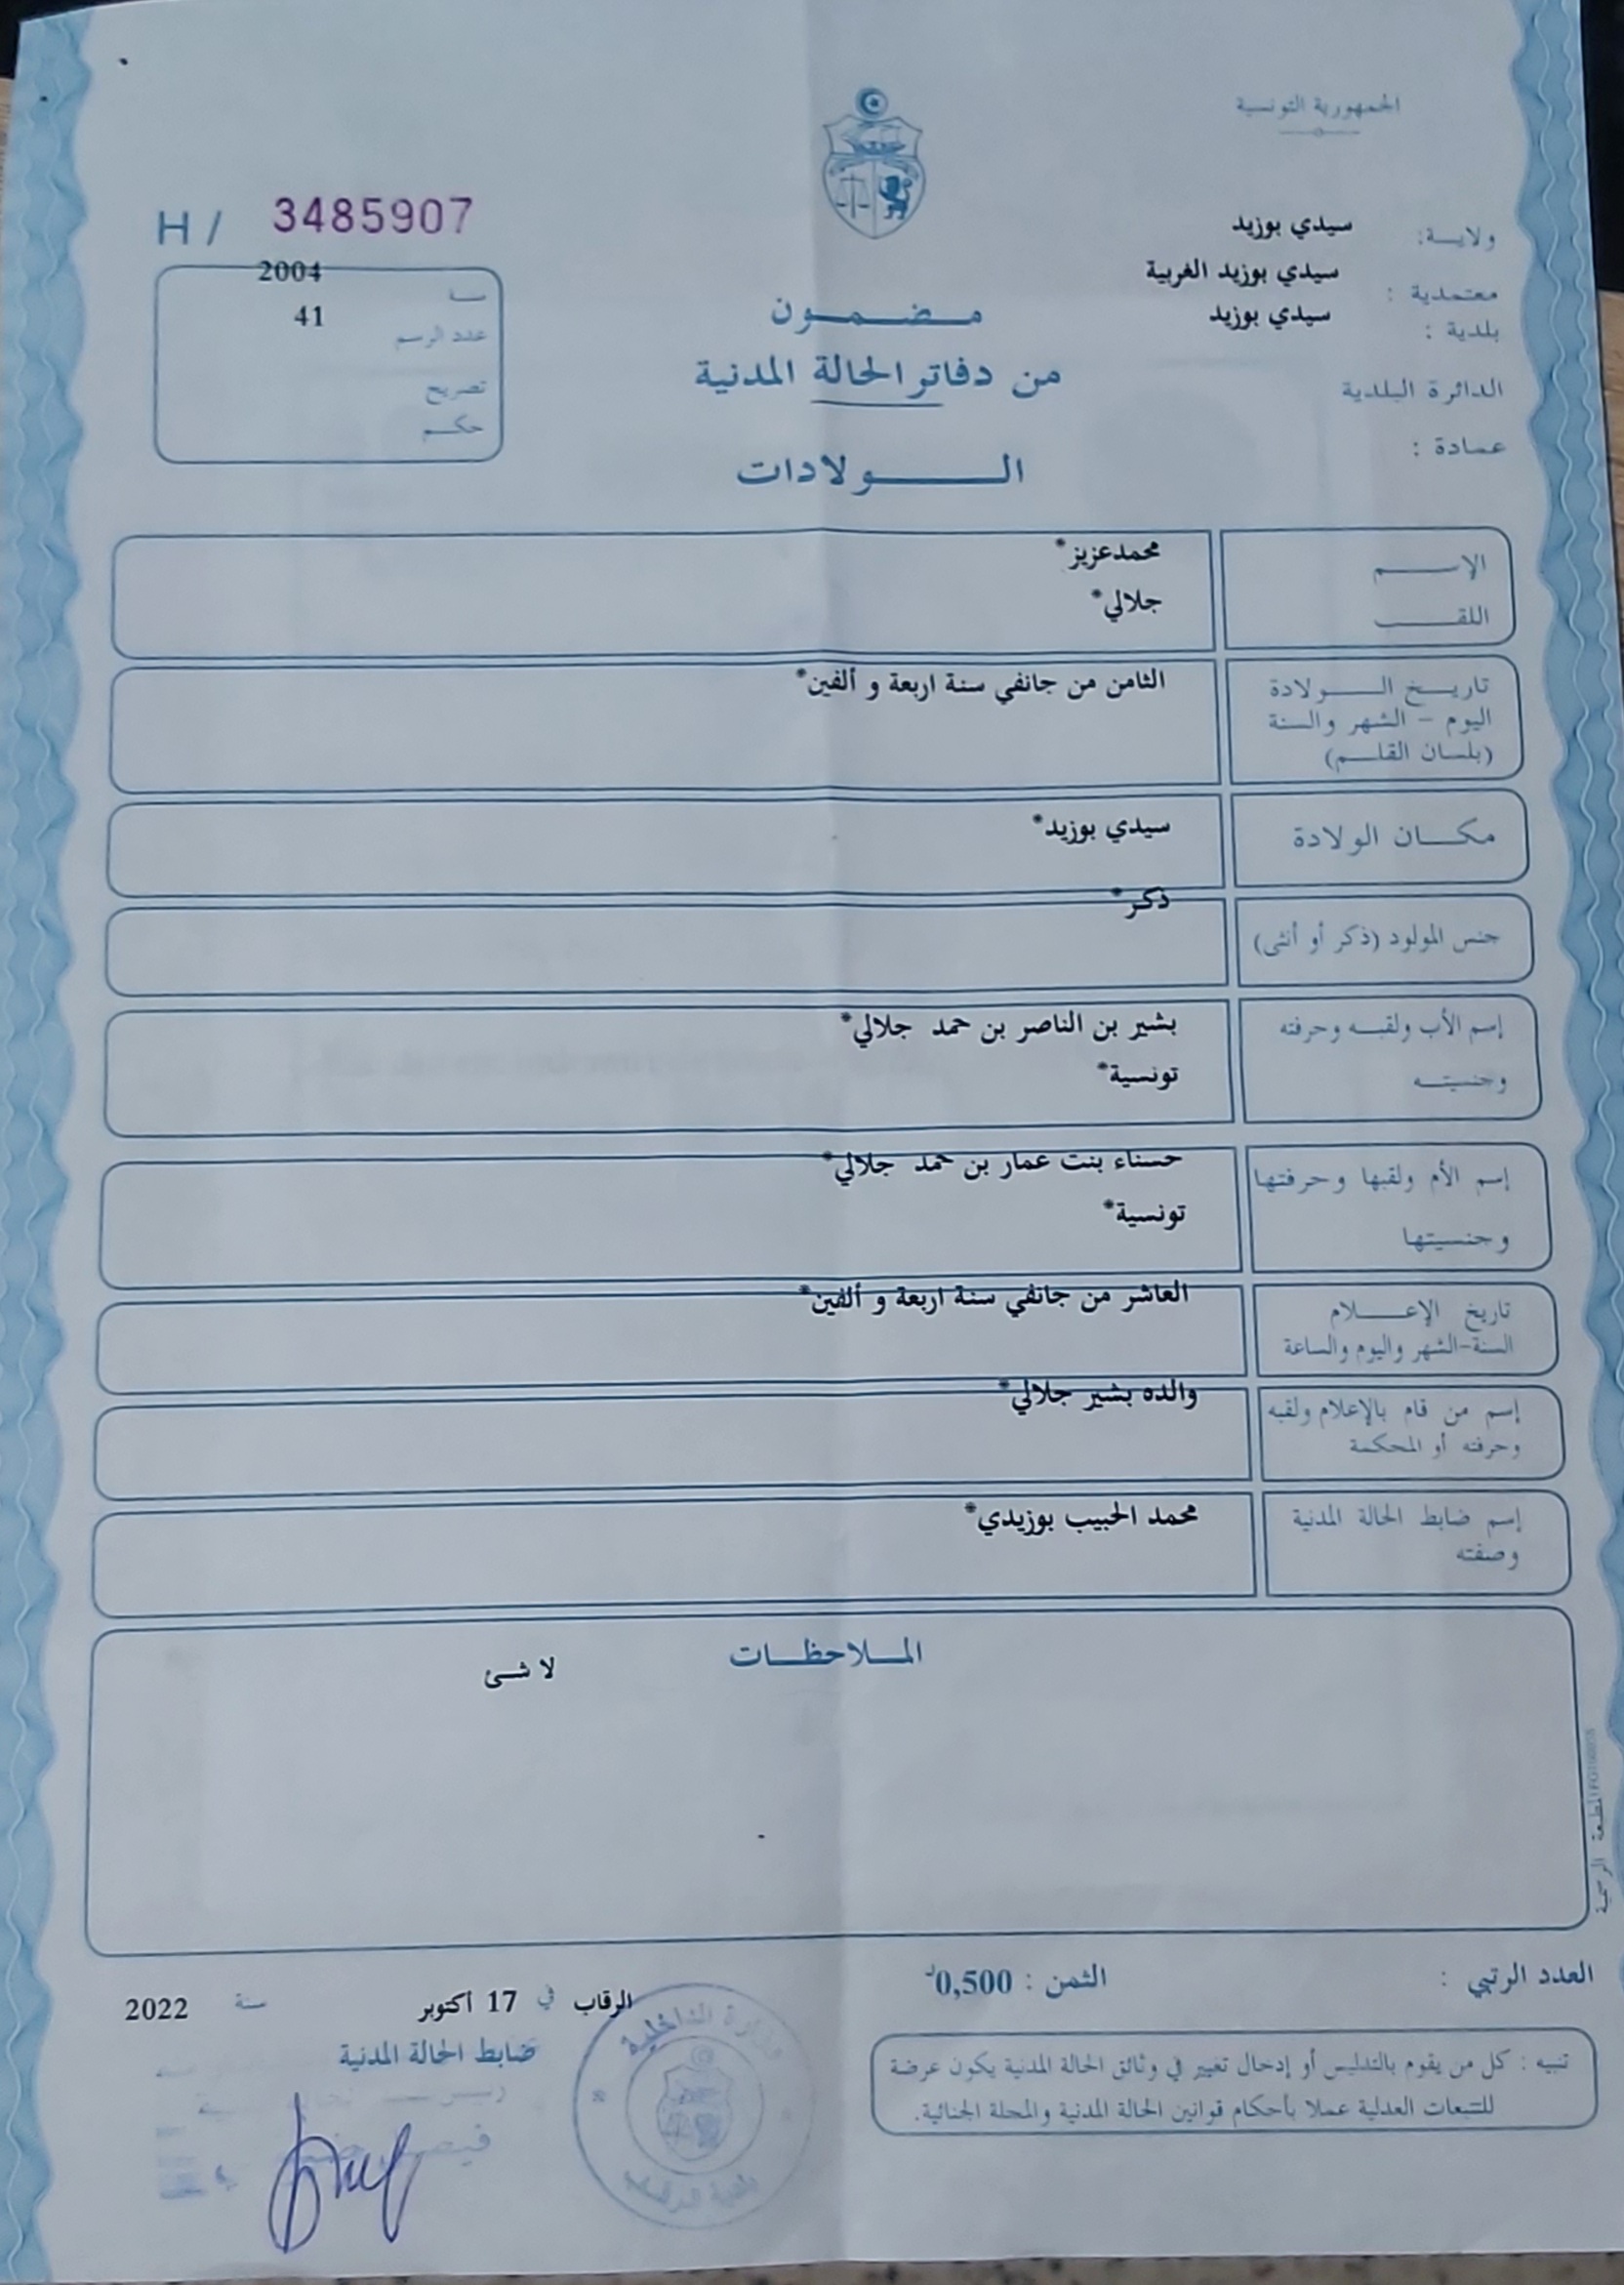 الجمهورية التونسية
ولاية: سيدي بوزيد
معتمدية : سيدي بوزيد الغربية
بلدية : سيدي بوزيد
الدائرة البلدية
عمادة :
H / 3485907
سنة 2004
عدد الرسم 41
تصريح
حكم
مضمون
من دفاتر الحالة المدنية
الولادات
الإسم محمدعزيز*
اللقب جلالي*
تاريخ الولادة الثامن من جانفي سنة اربعة و ألفين*
اليوم - الشهر والسنة
(بلسان القلم)
مكان الولادة سيدي بوزيد*
جنس المولود (ذكر أو أنثى) ذكر*
إسم الأب ولقبه وحرفته بشير بن الناصر بن حمد جلالي*
وجنسيته تونسية*
إسم الأم ولقبها وحرفتها حسناء بنت عمار بن حمد جلالي*
وجنسيتها تونسية*
تاريخ الإعلام العاشر من جانفي سنة اربعة و ألفين*
السنة-الشهر واليوم والساعة
إسم من قام بالإعلام ولقبه والده بشير جلالي*
وحرفته أو المحكمة
إسم ضابط الحالة المدنية محمد الحبيب بوزيدي*
وصفته
الملاحظات
لا شئ
المطبعة الرسمية
العدد الرتبي :
الثمن : 0,500د
الرقاب في 17 أكتوبر سنة 2022
ضابط الحالة المدنية
تنبيه : كل من يقوم بالتدليس أو إدخال تغيير في وثائق الحالة المدنية يكون عرضة
للتتبعات العدلية عملا بأحكام قوانين الحالة المدنية والمجلة الجنائية.
وزارة الداخلية
بلدية الرقاب